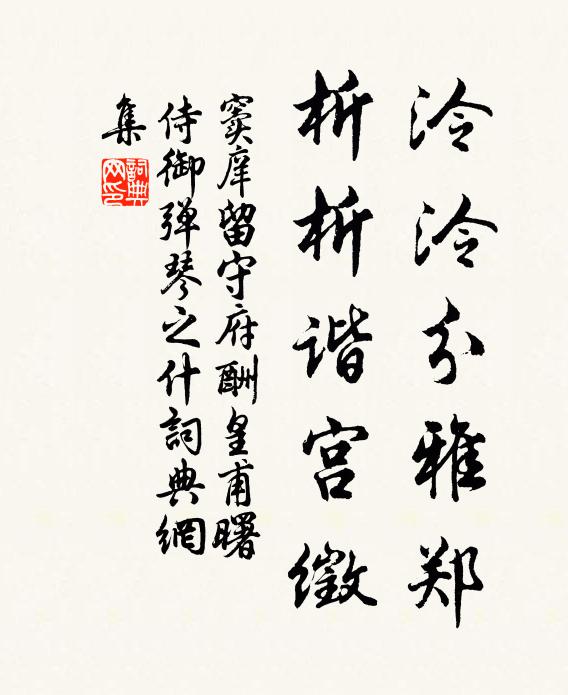 泠泠分雅郑
析析谐宫徵
窦庠留守府酬皇甫曙
侍御弹琴之什詞典網
集
詞典网印